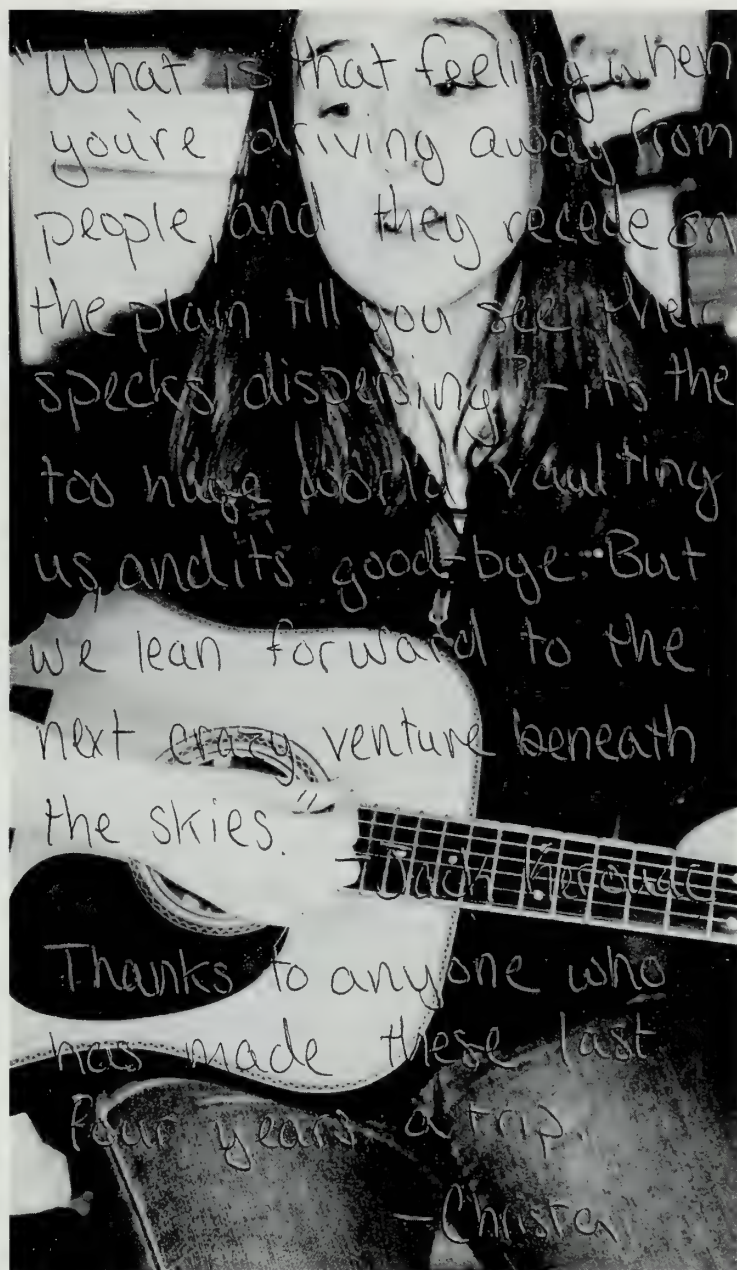 "What is that feeling when
you're driving away from
people, and they recede on
the plain till you see their
specks dispersing? - it's the
too huge world vaulting
us, and its good-bye. But
we lean forward to the
next crazy venture beneath
the skies."
- Jack Kerouac
Thanks to anyone who
has made these last
four years a trip.
- Christa